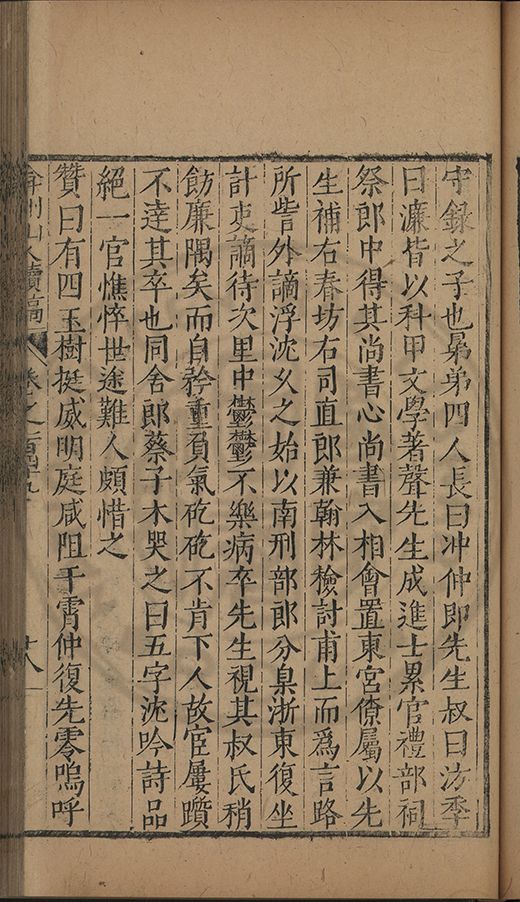 守錄之子也㬅弟四人長曰冲仲即先生叔曰汸季
曰濂皆以科甲文學著聲先生成進士累官禮部祠
祭郎中得其尚書心尚書入相會置東宮僚屬以先
生補右春坊右司直郎兼翰林檢討甫上而爲言路
所訾外謫浮沈久之始以南刑部郎分臬浙東復坐
計吏謫待次里中鬱鬱不樂病卒先生視其叔氏稍
飭廉隅矣而自矜重負氣矻矻不肯下人故宦屢躓
不達其卒也同舍郎蔡子木哭之曰五字沈吟詩品
絕一官憔悴世途難人頗惜之
贊曰有四玉樹挺威明庭咸阻干霄仲復先零嗚呼
弇州山人續稿 卷之一百四十九 十八